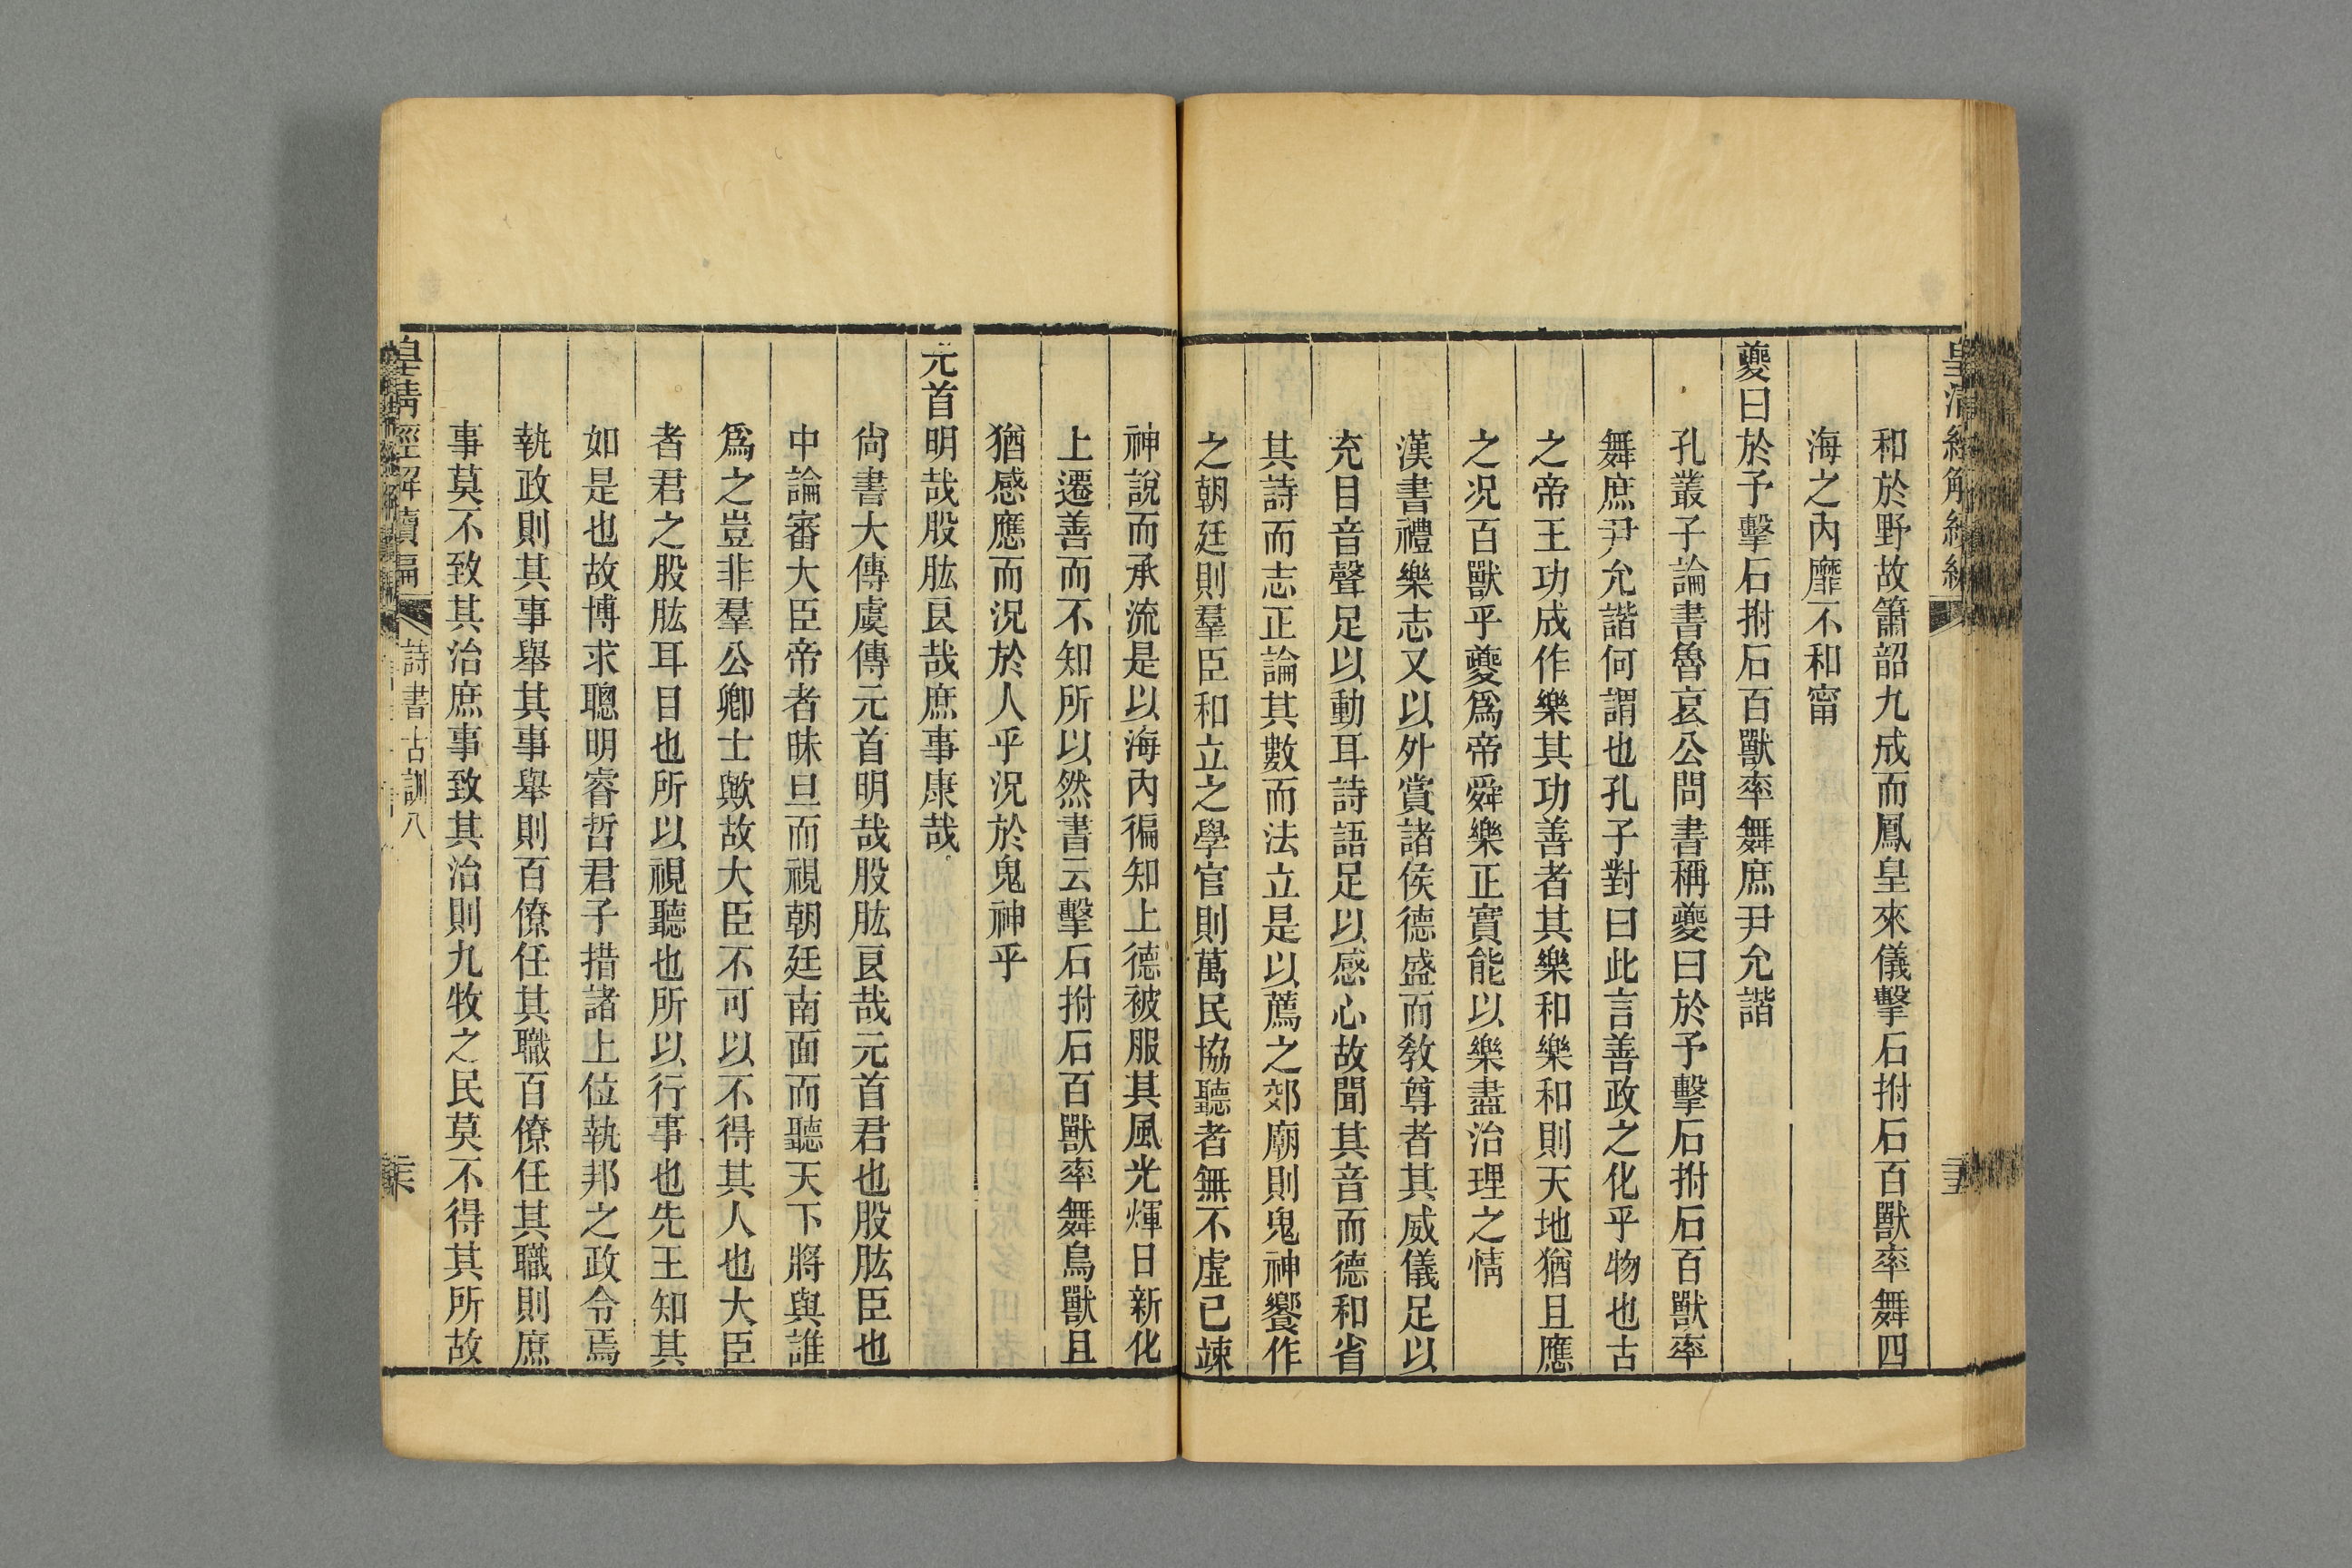 皇清經解續編
和於野故簫韶九成而鳳皇來儀擊石拊石百獸率舞四
海之內靡不和甯
夔曰於予擊石拊石百獸率舞庶尹允諧
孔叢子論書魯哀公問書稱夔曰於予擊石拊石百獸率
舞庶尹允諧何謂也孔子對曰此言善政之化乎物也古
之帝王功成作樂其功善者其樂和樂和則天地猶且應
之況百獸乎夔爲帝舜樂正實能以樂盡治理之情
漢書禮樂志又以外賞諸侯德盛而敎尊者其威儀足以
充目音聲足以動耳詩語足以感心故聞其音而德和省
其詩而志正論其數而法立是以薦之郊廟則鬼神饗作
之朝廷則羣臣和立之學官則萬民協聽者無不虛已竦
神說而承流是以海內徧知上德被服其風光煇日新化
上遷善而不知所以然書云擊石拊石百獸率舞鳥獸且
猶感應而況於人乎況於鬼神乎
元首明哉股肱良哉庶事康哉
尚書大傳虞傳元首明哉股肱良哉元首君也股肱臣也
中論審大臣帝者昧旦而視朝廷南面而聽天下將與誰
爲之豈非羣公卿士歟故大臣不可以不得其人也大臣
者君之股肱耳目也所以視聽也所以行事也先王知其
如是也故博求聰明睿哲君子措諸上位執邦之政令焉
執政則其事舉其事舉則百僚任其職百僚任其職則庶
事莫不致其治庶事致其治則九牧之民莫不得其所故
皇清經解續編 詩書古訓八